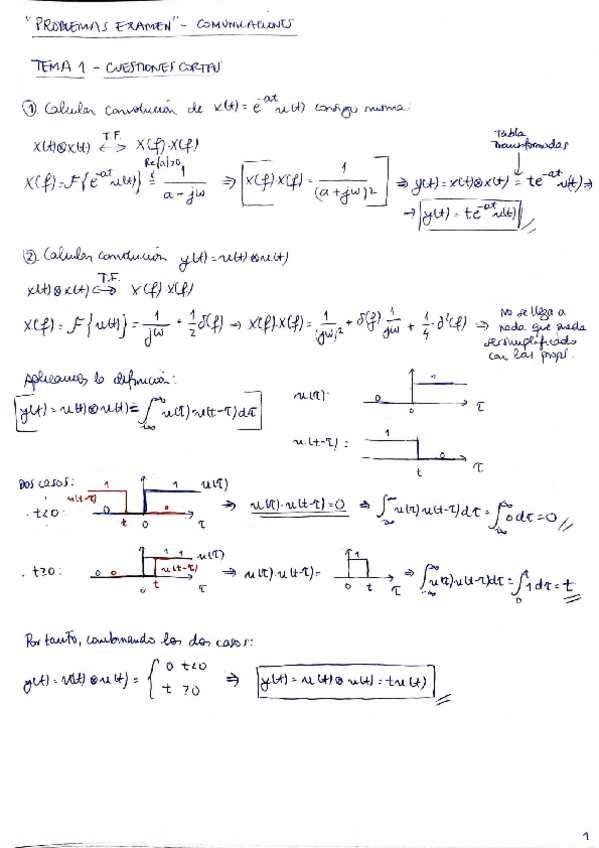 "PROBLEMAS EXAMEN" - COMUNICACIONES
TEMA 1 - CUESTIONES CORTAS
① Calcular convolución de x(t) = e^-at u(t) consigo misma:
x(t)⊗x(t) T.F. ⟷ X(f)·X(f)
Tabla Transformadas
X(f) = F{e^-at u(t)} = Re(a)>0 1/(a-jω) ⇒ X(f)·X(f) = 1/(a+jω)² ⇒ y(t) = x(t)⊗x(t) = te^-at u(t) ⇒
→ y(t) = te^-at u(t)
② Calcular convolución y(t) = u(t)⊗u(t)
x(t)⊗x(t) T.F. ⟷ X(f)·X(f)
X(f) = F{u(t)} = 1/jω + 1/2 δ(f) → X(f)·X(f) = 1/(jω)² + δ(f) 1/jω + 1/4 · δ²(f) ⇒ No se llega a
nada que pueda
ser simplificado
con las props.
Aplicamos la definición:
y(t) = u(t)⊗u(t) = ∫_-∞^∞ u(τ)·u(t-τ)dτ
u(τ): 1 0 0 τ
u(t-τ): 1 0 t τ
Dos casos:
· t<0: u(t-τ) 1 1 u(τ) 0 0 t 0 τ ⇒ u(τ)·u(t-τ) = 0 ⇒ ∫_-∞^∞ u(τ)u(t-τ)dτ = ∫_-∞^∞ 0dτ = 0
· t>0: 1 1 u(τ) u(t-τ) 0 0 0 t τ ⇒ u(τ)·u(t-τ) = 1 0 t τ ⇒ ∫_-∞^∞ u(τ)u(t-τ)dτ = ∫_0^t 1dτ = t
Por tanto, combinando los dos casos:
y(t) = u(t)⊗u(t) = { 0 t<0
t >0 ⇒ y(t) = u(t)⊗u(t) = tu(t)
1